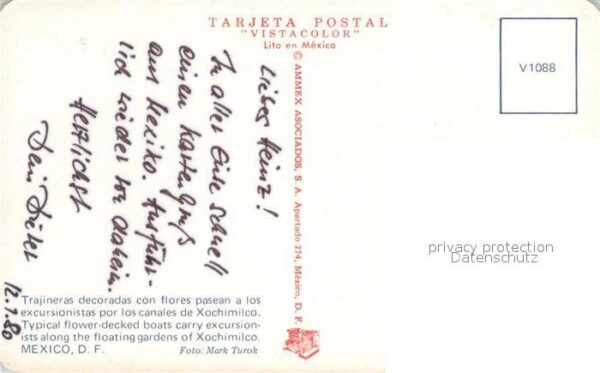 TARJETA POSTAL
"VISTACOLOR"
Lito en México
© AMMEX ASOCIADOS, S. A. Apartado 274, México, D. F.
V1088
Lieber Heinz!
In aller Eile schnell
einen Kartengruß
aus Mexiko. Ausführ-
lich wieder von daheim.
Herzlichst
Dein Dieter
12.1.80
Trajineras decoradas con flores pasean a los
excursionistas por los canales de Xochimilco.
Typical flower-decked boats carry excursion-
ists along the floating gardens of Xochimilco.
MEXICO, D. F.
Foto: Mark Turok
privacy protection
Datenschutz